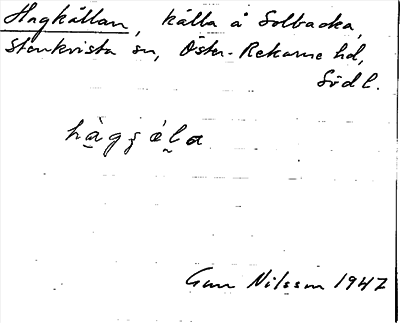 Hagkällan, källa å Solbacka,
Stenkvista sn, Öster-Rekarne hd,
Södl.
hàgʒéla
Gun Nilsson 1947